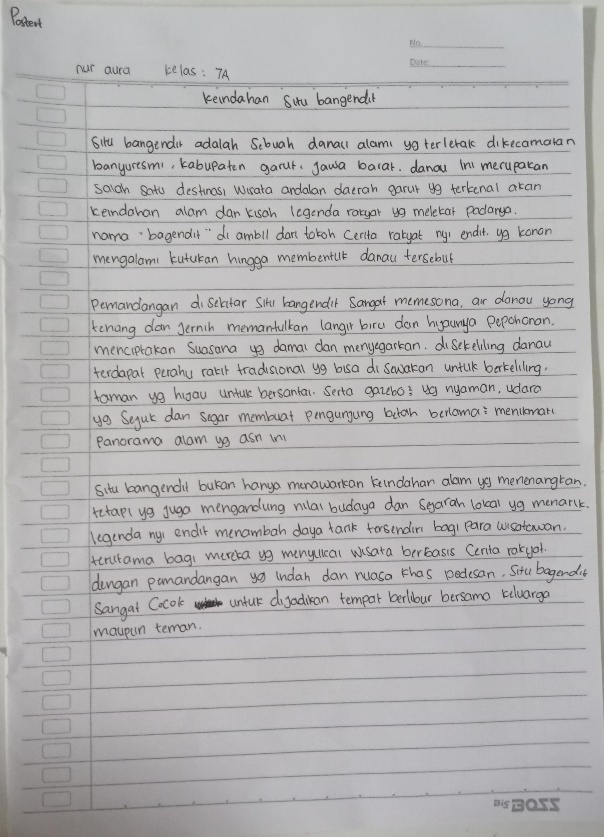 Postest
No.
Date:
nur aura kelas : 7A
Keindahan Situ bangendit
Situ bangendit adalah Sebuah danau alami yg terletak dikecamatan
banyuresmi, kabupaten garut, jawa barat. danau ini merupakan
Salah satu destinasi wisata andalan daerah garut yg terkenal akan
keindahan alam dan kisah legenda rakyat yg melekat padanya.
nama "bagendit" di ambil dari tokoh Cerita rakyat nyi endit. yg konon
mengalami kutukan hingga membentuk danau tersebut
Pemandangan di sekitar Situ bangendit Sangat memesona, air danau yang
tenang dan jernih memantulkan langit biru dan hijaunya Pepohonan.
menciptakan Suasana yg damai dan menyegarkan. disekeliling danau
terdapat perahu rakit tradisional yg bisa di sewakan untuk berkeliling.
taman yg hijau untuk bersantai. Serta gazebo² yg nyaman, udara
yg Sejuk dan Segar membuat pengunjung betah berlama² menikmati
Panorama alam yg asri ini
Situ bangendit bukan hanya menawarkan keindahan alam yg menenangkan.
tetapi yg juga mengandung nilai budaya dan Sejarah lokal yg menarik.
legenda nyi endit menambah daya tarik tersendiri bagi Para wisatawan.
terutama bagi mereka yg menyukai wisata berbasis Cerita rakyat.
dengan pemandangan yg indah dan nuasa khas pedesan. Situ bagendit
Sangat Cocok untuk dijadikan tempat berlibur bersama keluarga
maupun teman.
Bis BOSS